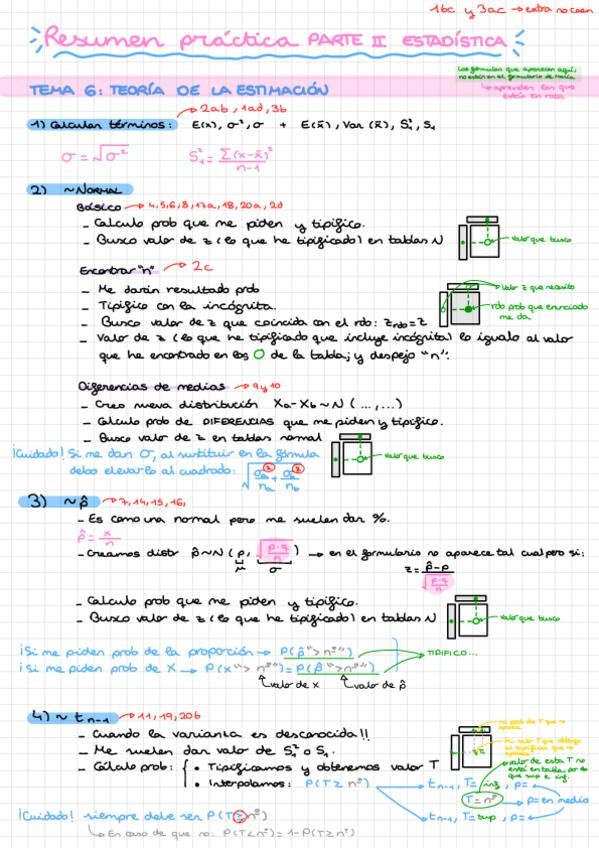 1bc y 3ac → extra no caen
Resumen práctica PARTE II ESTADÍSTICA
Las fórmulas que aparecen aquí,
no están en el formulario de
↳ aprenderlas que están en rosa
TEMA 6: TEORÍA DE LA ESTIMACIÓN
→ 2ab, 1ad, 3b
1) Calcular términos: E(x), σ², σ + E(x̄), Var (x̄), S₁², S₁
σ = √σ² S₁² = Σ(x-x̄)² / n-1
2) ~ NORMAL
Básico → 4,5,6,8,17a,18,20a,2d
- Calculo prob que me piden y tipifico.
- Busco valor de z (lo que he tipificado) en tablas N
valor que busco
Encontrar "n" → 2c
- Me darán resultado prob
- Tipifico con la incógnita.
- Busco valor de z que coincida con el rdo: z_rdo = z
- Valor de z (lo que he tipificado que incluye incógnita) lo igualo al valor
que he encontrado en los O de la tabla; y despejo "n".
valor z que necesito
rdo prob que enunciado
me da
Diferencias de medias → 9 y 10
- Creo nueva distribución Xa - Xb ~ N (..., ...)
- Calculo prob de DIFERENCIAS que me piden y tipifico.
- Busco valor de z en tablas normal
valor que busco
¡Cuidado! Si me dan σ, al sustituir en la fórmula
debo elevarlo al cuadrado: √(σa²/na + σb²/nb)
3) ~ p̂ → 7,14,15,16,
- Es como una normal pero me suelen dar %.
p̂ = x/n
- Creamos distr p̂ ~ N (p, √(p·q/n)) → en el formulario no aparece tal cual pero si:
μ σ z = p̂-p / √(p·q/n)
- Calculo prob que me piden y tipifico.
- Busco valor de z (lo que he tipificado) en tablas N
valor que busco
¡Si me piden prob de la proporción → P(p̂ ">" nº")
¡Si me piden prob de X → P(x ">" nº") = P(p̂ ">" nº")
TIPIFICO...
valor de x valor de p̂
4) ~ t n-1 → 11, 19, 20b
- Cuando la varianza es desconocida!!
- Me suelen dar valor de S₁² o S₁.
- Cálculo prob: { • Tipificamos y obtenemos valor T
• Interpolamos: P(T ≥ nº)
valor de esta T no
está en tabla, por lo
que sup e inf.
t n-1, T = inf, p =
T = nº → p = en medio
t n-1, T = sup, p =
¡Cuidado! siempre debe ser P(T ≥ nº)
↳ En caso de que no: P(T < nº) = 1 - P(T ≥ nº)